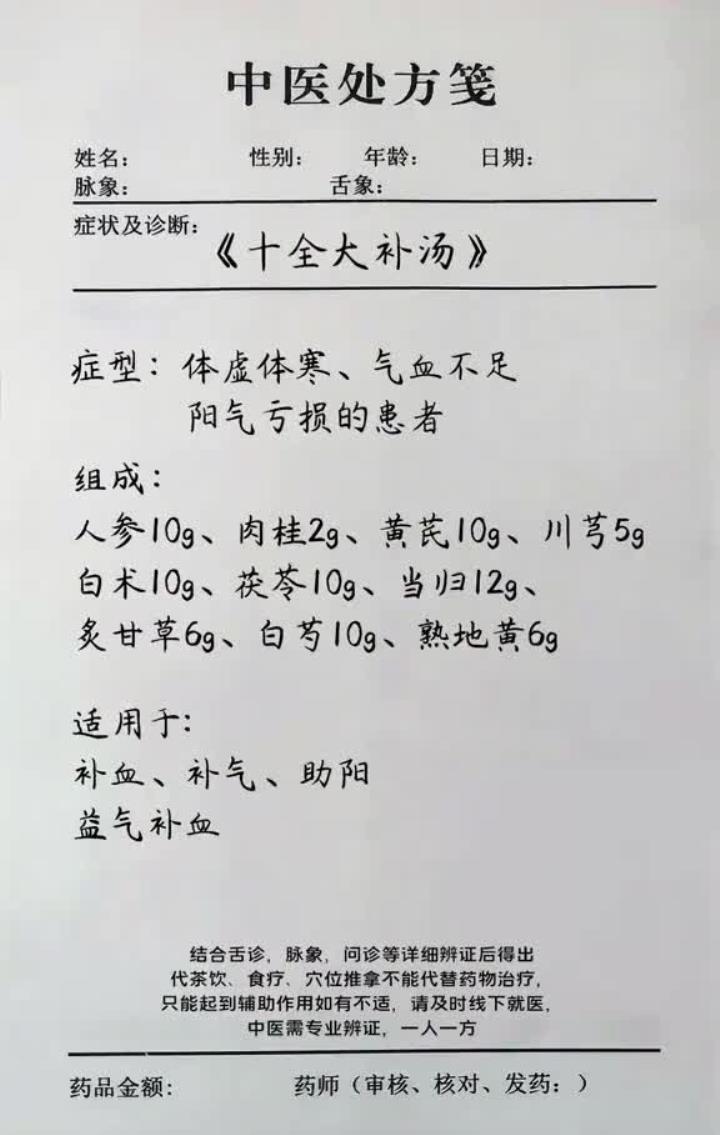 中医处方笺
姓名： 性别： 年龄： 日期：
脉象： 舌象：
症状及诊断：
《十全大补汤》
症型：体虚体寒、气血不足
阳气亏损的患者
组成：
人参10g、肉桂2g、黄芪10g、川芎5g
白术10g、茯苓10g、当归12g、
炙甘草6g、白芍10g、熟地黄6g
适用于：
补血、补气、助阳
益气补血
结合舌诊，脉象，问诊等详细辨证后得出
代茶饮、食疗、穴位推拿不能代替药物治疗，
只能起到辅助作用如有不适，请及时线下就医，
中医需专业辨证，一人一方
药品金额： 药师（审核、核对、发药：）